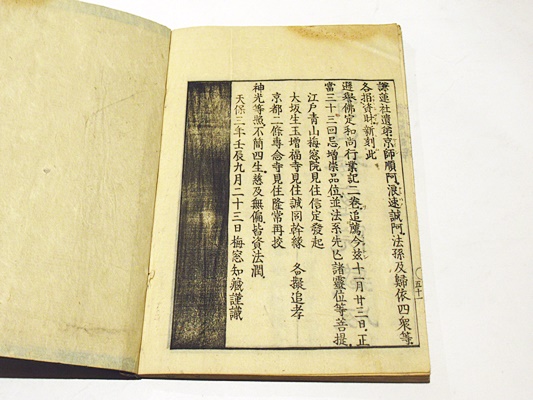 蓮社遺弟京師順阿浪速誠阿法孫及歸依四衆等
各捐資財新刻此
遵譽佛定和尚行業記二卷追薦今玆十一月廿三日正
當三十三回忌增崇品位並法系先亡諸靈位等菩提
江戸青山梅窓院見住信定發起
大坂生玉增福寺見住誠同幹緣 各擬追孝
京都二條專念寺見住隆常再挍
神光等照不簡四生慈及無偏皆資法潤
天保三年壬辰九月二十三日梅窓知藏謹識
五十